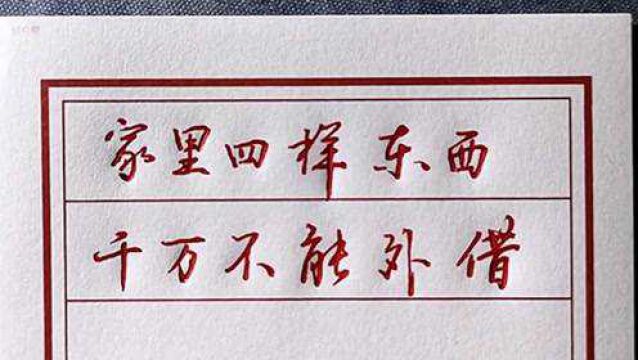 家里四样东西
千万不能外借